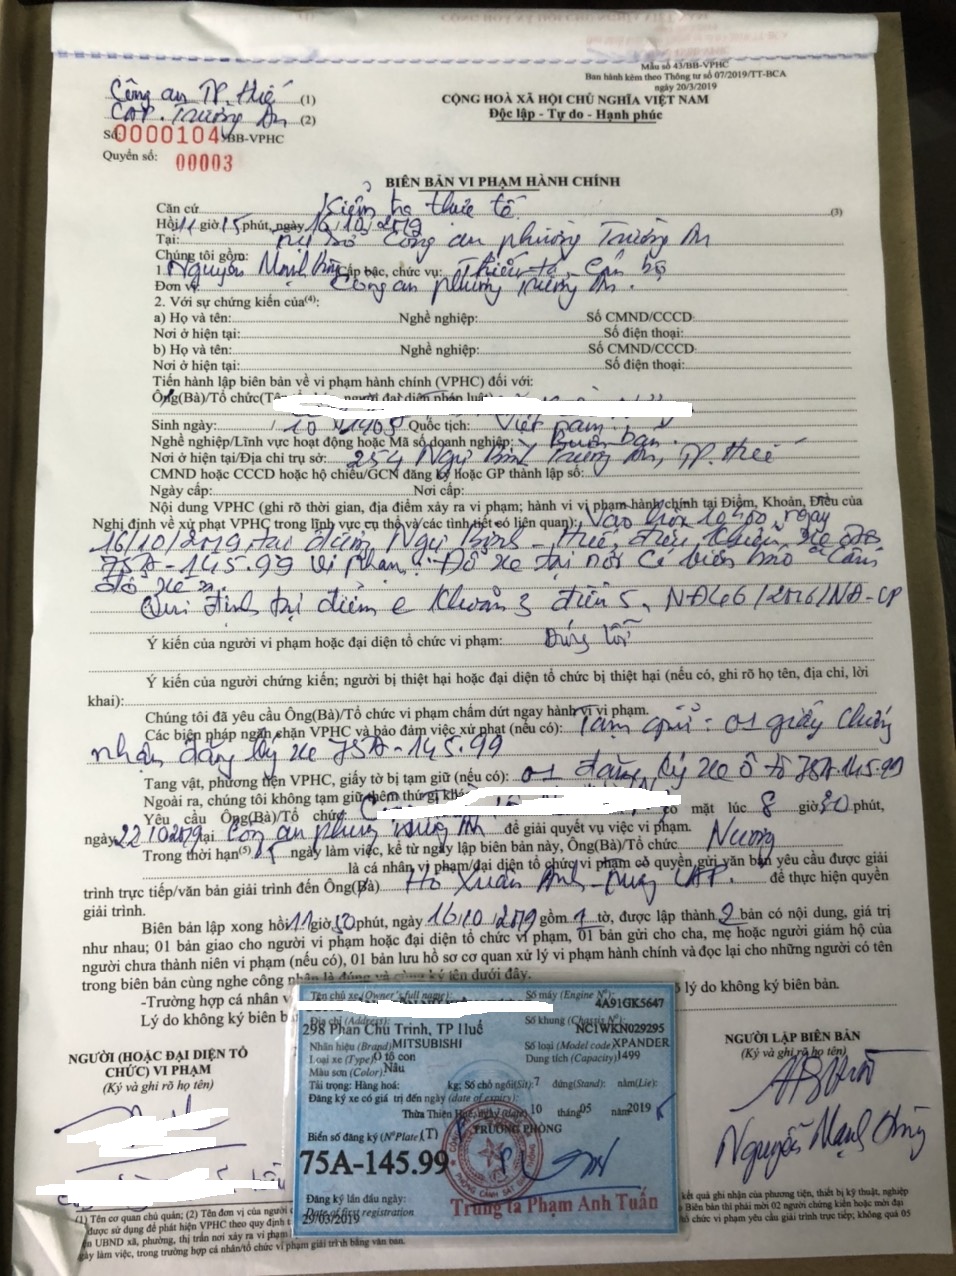 Mẫu số 43/BB-VPHC
Ban hành kèm theo Thông tư số 07/2019/TT-BCA
ngày 20/3/2019
Công an TP. Huế (1)
CAP. Trường An (2)
Số: 0000104 /BB-VPHC
Quyển số: 00003
CỘNG HOÀ XÃ HỘI CHỦ NGHĨA VIỆT NAM
Độc lập - Tự do - Hạnh phúc
BIÊN BẢN VI PHẠM HÀNH CHÍNH
Căn cứ Kiểm tra thực tế (3)
Hồi 11 giờ 15 phút, ngày 16/10/2019
Tại: trụ sở Công an phường Trường An
Chúng tôi gồm:
1. Nguyễn Mạnh Hùng Cấp bậc, chức vụ: Thiếu tá, Cán bộ
Đơn vị: Công an phường Trường An.
2. Với sự chứng kiến của(4):
a) Họ và tên: Nghề nghiệp: Số CMND/CCCD
Nơi ở hiện tại: Số điện thoại:
b) Họ và tên: Nghề nghiệp: Số CMND/CCCD
Nơi ở hiện tại: Số điện thoại:
Tiến hành lập biên bản về vi phạm hành chính (VPHC) đối với:
Ông(Bà)/Tổ chức(Tên người đại diện pháp luật
Sinh ngày: / 10 /1965 Quốc tịch: Việt Nam
Nghề nghiệp/Lĩnh vực hoạt động hoặc Mã số doanh nghiệp: Buôn bán.
Nơi ở hiện tại/Địa chỉ trụ sở: 254 Ngự Bình Trường An, TP. Huế
CMND hoặc CCCD hoặc hộ chiếu/GCN đăng ký hoặc GP thành lập số:
Ngày cấp: Nơi cấp:
Nội dung VPHC (ghi rõ thời gian, địa điểm xảy ra vi phạm; hành vi vi phạm hành chính tại Điểm, Khoản, Điều của
Nghị định về xử phạt VPHC trong lĩnh vực cụ thể và các tình tiết có liên quan): Vào hồi 10h00, ngày
16/10/2019, tại điểm Ngự Bình - Huế, điều khiển xe ôtô
75A-145.99 vi phạm: Đỗ xe tại nơi có biển báo "Cấm
đỗ xe"
Qui định tại điểm e khoản 3 điều 5, NĐ46/2016/NĐ-CP
Ý kiến của người vi phạm hoặc đại diện tổ chức vi phạm: Đúng lỗi
Ý kiến của người chứng kiến; người bị thiệt hại hoặc đại diện tổ chức bị thiệt hại (nếu có, ghi rõ họ tên, địa chỉ, lời
khai):
Chúng tôi đã yêu cầu Ông(Bà)/Tổ chức vi phạm chấm dứt ngay hành vi vi phạm.
Các biện pháp ngăn chặn VPHC và bảo đảm việc xử phạt (nếu có): Tạm giữ: 01 giấy chứng
nhận đăng ký xe 75A-145.99
Tang vật, phương tiện VPHC, giấy tờ bị tạm giữ (nếu có): 01 đăng ký xe ô tô 75A-145.99
Ngoài ra, chúng tôi không tạm giữ thêm thứ gì khác
Yêu cầu Ông(Bà)/Tổ chức có mặt lúc 8 giờ 30 phút,
ngày 22/10/2019 tại Công an phường Trường An để giải quyết vụ việc vi phạm.
Trong thời hạn(5) 05 ngày làm việc, kể từ ngày lập biên bản này, Ông(Bà)/Tổ chức
là cá nhân vi phạm/đại diện tổ chức vi phạm có quyền gửi văn bản yêu cầu được giải
trình trực tiếp/văn bản giải trình đến Ông(Bà) Hồ Xuân Anh để thực hiện quyền
giải trình.
Biên bản lập xong hồi 11 giờ 50 phút, ngày 16/10/2019 gồm 1 tờ, được lập thành 2 bản có nội dung, giá trị
như nhau; 01 bản giao cho người vi phạm hoặc đại diện tổ chức vi phạm, 01 bản gửi cho cha, mẹ hoặc người giám hộ của
người chưa thành niên vi phạm (nếu có), 01 bản lưu hồ sơ cơ quan xử lý vi phạm hành chính và đọc lại cho những người có tên
trong biên bản cùng nghe công nhận là đúng và cùng ký tên dưới đây.
-Trường hợp cá nhân vi lý do không ký biên bản.
Lý do không ký biên bản
NGƯỜI (HOẶC ĐẠI DIỆN TỔ
CHỨC) VI PHẠM
(Ký và ghi rõ họ tên)
NGƯỜI LẬP BIÊN BẢN
(Ký và ghi rõ họ tên)
Nguyễn Mạnh Hùng
Tên chủ xe (Owner's full name): Số máy (Engine Nº):
4A91GK5647
Địa chỉ (Address): Số khung (Chassis Nº):
298 Phan Chu Trinh, TP Huế NC1WKN029295
Nhãn hiệu (Brand) MITSUBISHI Số loại (Model code) XPANDER
Loại xe (Type) Ô tô con Dung tích (Capacity) 1499
Màu sơn (Color) Nâu
Tải trọng: Hàng hoá: kg; Số chỗ ngồi(Sit): 7 đứng(Stand): nằm(Lie):
Đăng ký xe có giá trị đến ngày (date of expiry)
Thừa Thiên Huế, ngày (date) 10 tháng 05 năm 2019
TRƯỞNG PHÒNG
Biển số đăng ký (Nº Plate) (T)
75A-145.99
Đăng ký lần đầu ngày:
Date of first registration
29/03/2019
Trung tá Phạm Anh Tuấn
(1) Tên cơ quan chủ quản; (2) Tên đơn vị của người
kết quả ghi nhận của phương tiện, thiết bị kỹ thuật, nghiệp
được sử dụng để phát hiện VPHC theo quy định
Biên bản thì phải mời 02 người chứng kiến hoặc mời đại
UBND xã, phường, thị trấn nơi xảy ra vi phạm
chức vi phạm yêu cầu giải trình trực tiếp; không quá 05
ngày làm việc, trong trường hợp cá nhân/tổ chức vi phạm giải trình bằng văn bản.